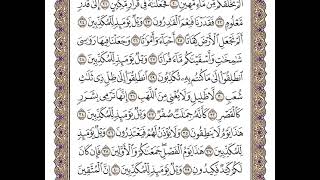 أَلَمْ نَخْلُقكُّم مِّن مَّآءٍ مَّهِينٍ ٢٠ فَجَعَلْنَٰهُ فِى قَرَارٍ مَّكِينٍ ٢١ إِلَىٰ قَدَرٍ
مَّعْلُومٍ ٢٢ فَقَدَرْنَا فَنِعْمَ ٱلْقَٰدِرُونَ ٢٣ وَيْلٌ يَوْمَئِذٍ لِّلْمُكَذِّبِينَ ٢٤
أَلَمْ نَجْعَلِ ٱلْأَرْضَ كِفَاتًا ٢٥ أَحْيَآءً وَأَمْوَٰتًا ٢٦ وَجَعَلْنَا فِيهَا رَوَٰسِىَ
شَٰمِخَٰتٍ وَأَسْقَيْنَٰكُم مَّآءً فُرَاتًا ٢٧ وَيْلٌ يَوْمَئِذٍ لِّلْمُكَذِّبِينَ ٢٨
ٱنطَلِقُوٓا۟ إِلَىٰ مَا كُنتُم بِهِۦ تُكَذِّبُونَ ٢٩ ٱنطَلِقُوٓا۟ إِلَىٰ ظِلٍّ ذِى ثَلَٰثِ
شُعَبٍ ٣٠ لَّا ظَلِيلٍ وَلَا يُغْنِى مِنَ ٱللَّهَبِ ٣١ إِنَّهَا تَرْمِى بِشَرَرٍ
كَٱلْقَصْرِ ٣٢ كَأَنَّهُۥ جِمَٰلَتٌ صُفْرٌ ٣٣ وَيْلٌ يَوْمَئِذٍ لِّلْمُكَذِّبِينَ ٣٤
هَٰذَا يَوْمُ لَا يَنطِقُونَ ٣٥ وَلَا يُؤْذَنُ لَهُمْ فَيَعْتَذِرُونَ ٣٦ وَيْلٌ يَوْمَئِذٍ
لِّلْمُكَذِّبِينَ ٣٧ هَٰذَا يَوْمُ ٱلْفَصْلِ جَمَعْنَٰكُمْ وَٱلْأَوَّلِينَ ٣٨ فَإِن كَانَ
لَكُمْ كَيْدٌ فَكِيدُونِ ٣٩ وَيْلٌ يَوْمَئِذٍ لِّلْمُكَذِّبِينَ ٤٠ إِنَّ ٱلْمُتَّقِينَ